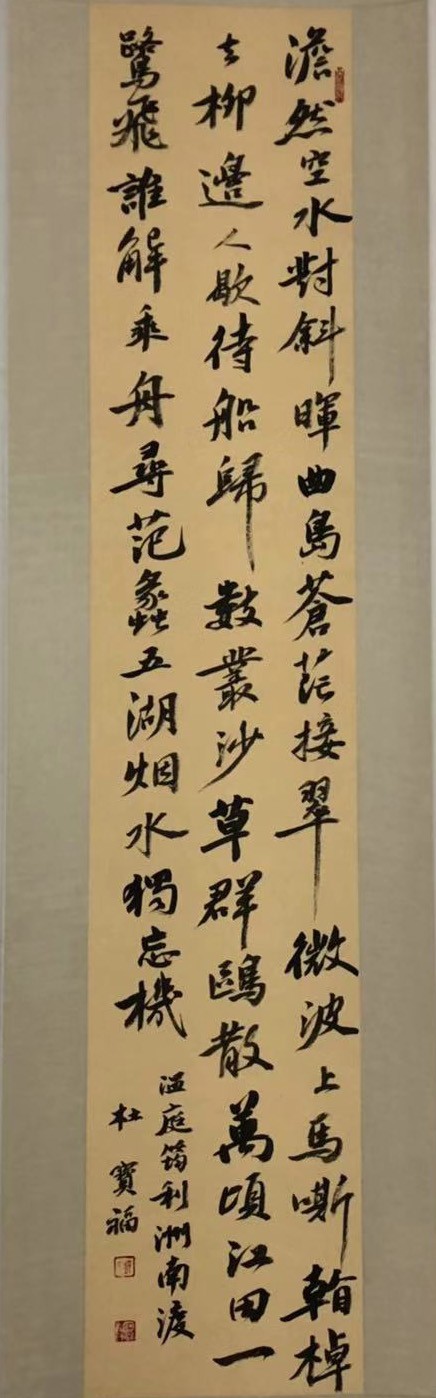 澹然空水對斜暉曲島蒼茫接翠微波上馬嘶看棹
去柳邊人歇待船歸數叢沙草群鷗散萬頃江田一
鷺飛誰解乘舟尋范蠡五湖烟水獨忘機
温庭筠利洲南渡
杜寶福